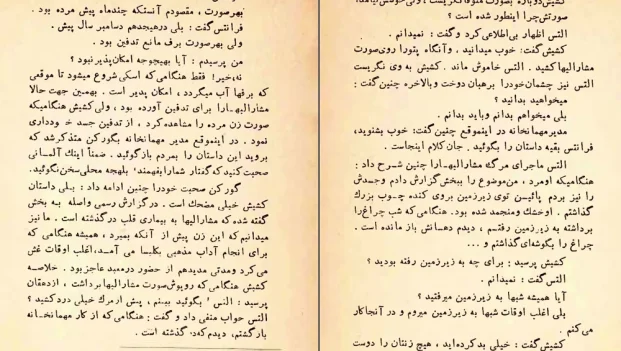 کشیش دوباره بصورت متوفا نگریست، ولی خوشش نیامد،
صورتش چرا اینطور شده است ؟
التس اظهار بی‌اطلاعی کرد و گفت : نمیدانم .
کشیش گفت : خوب میدانید ، وآنگاه پتورا روی صورت
مشارالیها کشید . التس خاموش ماند . کشیش به وی نگریست
التس نیز چشمان خود را برهبان دوخت و بالاخره چنین گفت :
میخواهید بدانید ؟
بلی میخواهم بدانم و باید بدانم .
مدیر مهمانخانه در اینموقع چنین گفت: خوب بشنوید،
فرانتس بقیه داستان را بگوئید . جان کلام اینجاست .
التس ماجرای مرگ مشارالیها را چنین شرح داد :
هنگامیکه اومرد ، من‌موضوع را ببخش گزارش دادم وجسدش
را نیز بردم پائین . توی زیرزمین بروی کنده چوب بزرگ
گذاشتم . اوخشک ومنجمد شده بود . هنگامی که شب چراغ را
برداشته به زیرزمین رفتم ، دیدم دهانش باز مانده است .
چراغ را بگوشه‌ای گذاشتم و ...
کشیش پرسید : برای چه به زیرزمین رفته بودید ؟
التس گفت : نمیدانم .
آیا همیشه شبها به زیرزمین میرفتید ؟
بلی اغلب اوقات شبها به زیرزمین میروم و در آنجا کار
می‌کنم .
کشیش گفت : خیلی بد کرده‌اید ، هیچ زنتان را دوست
بهرصورت ، مقصودم آنستکه چندماه پیش مرده بود .
فرانتس گفت : بلی درهیجدهم دسامبر سال پیش .
ولی بهرصورت برف مانع تدفین بود .
من پرسیدم : آیا بهیچوجه امکان‌پذیر نبود ؟
نه،خیر! فقط هنگامی که اسکی شروع میشود تا موقعی
که برفها آب میگردد ، امکان پذیر است . بهمین جهت حالا
مشارالیها را برای تدفین آورده بود ، ولی کشیش هنگامیکه
صورت زن مرده را مشاهده کرد ، از تدفین جسد خودداری
نمود . در اینموقع مدیر مهمانخانه بگورکن متذکر شد که
بروید این داستان را بمردم بازگوئید . ضمناً اینک آلمانی
صحبت کنید که گفتار شمارا بفهمند، بلهجه محلی سخن نگوئید.
گورکن صحبت خود را چنین ادامه داد : بلی داستان
کشیش خیلی مضحک است . در گزارش رسمی واصله به بخش
گفته شده که مشارالیها به بیماری قلب درگذشته است . ما نیز
میدانیم که این زن پیش از آنکه بمیرد ، همیشه هنگامی که
برای انجام آداب مذهبی بکلیسا می آمد، اغلب اوقات غش
می‌کرد ومدتی مدیدهم از حضور درمعبد عاجز بود . خلاصه
کشیش هنگامی که روپوش صورت مشارالیها برداشت ، ازدهقان
پرسید : التس ! بگوئید ببینم ، پیش از مرگ خیلی درد کشید ؟
التس جواب منفی داد و گفت : هنگامی که از کار مهمانخانه
بازگشتم، دیدم که درگذشته است .